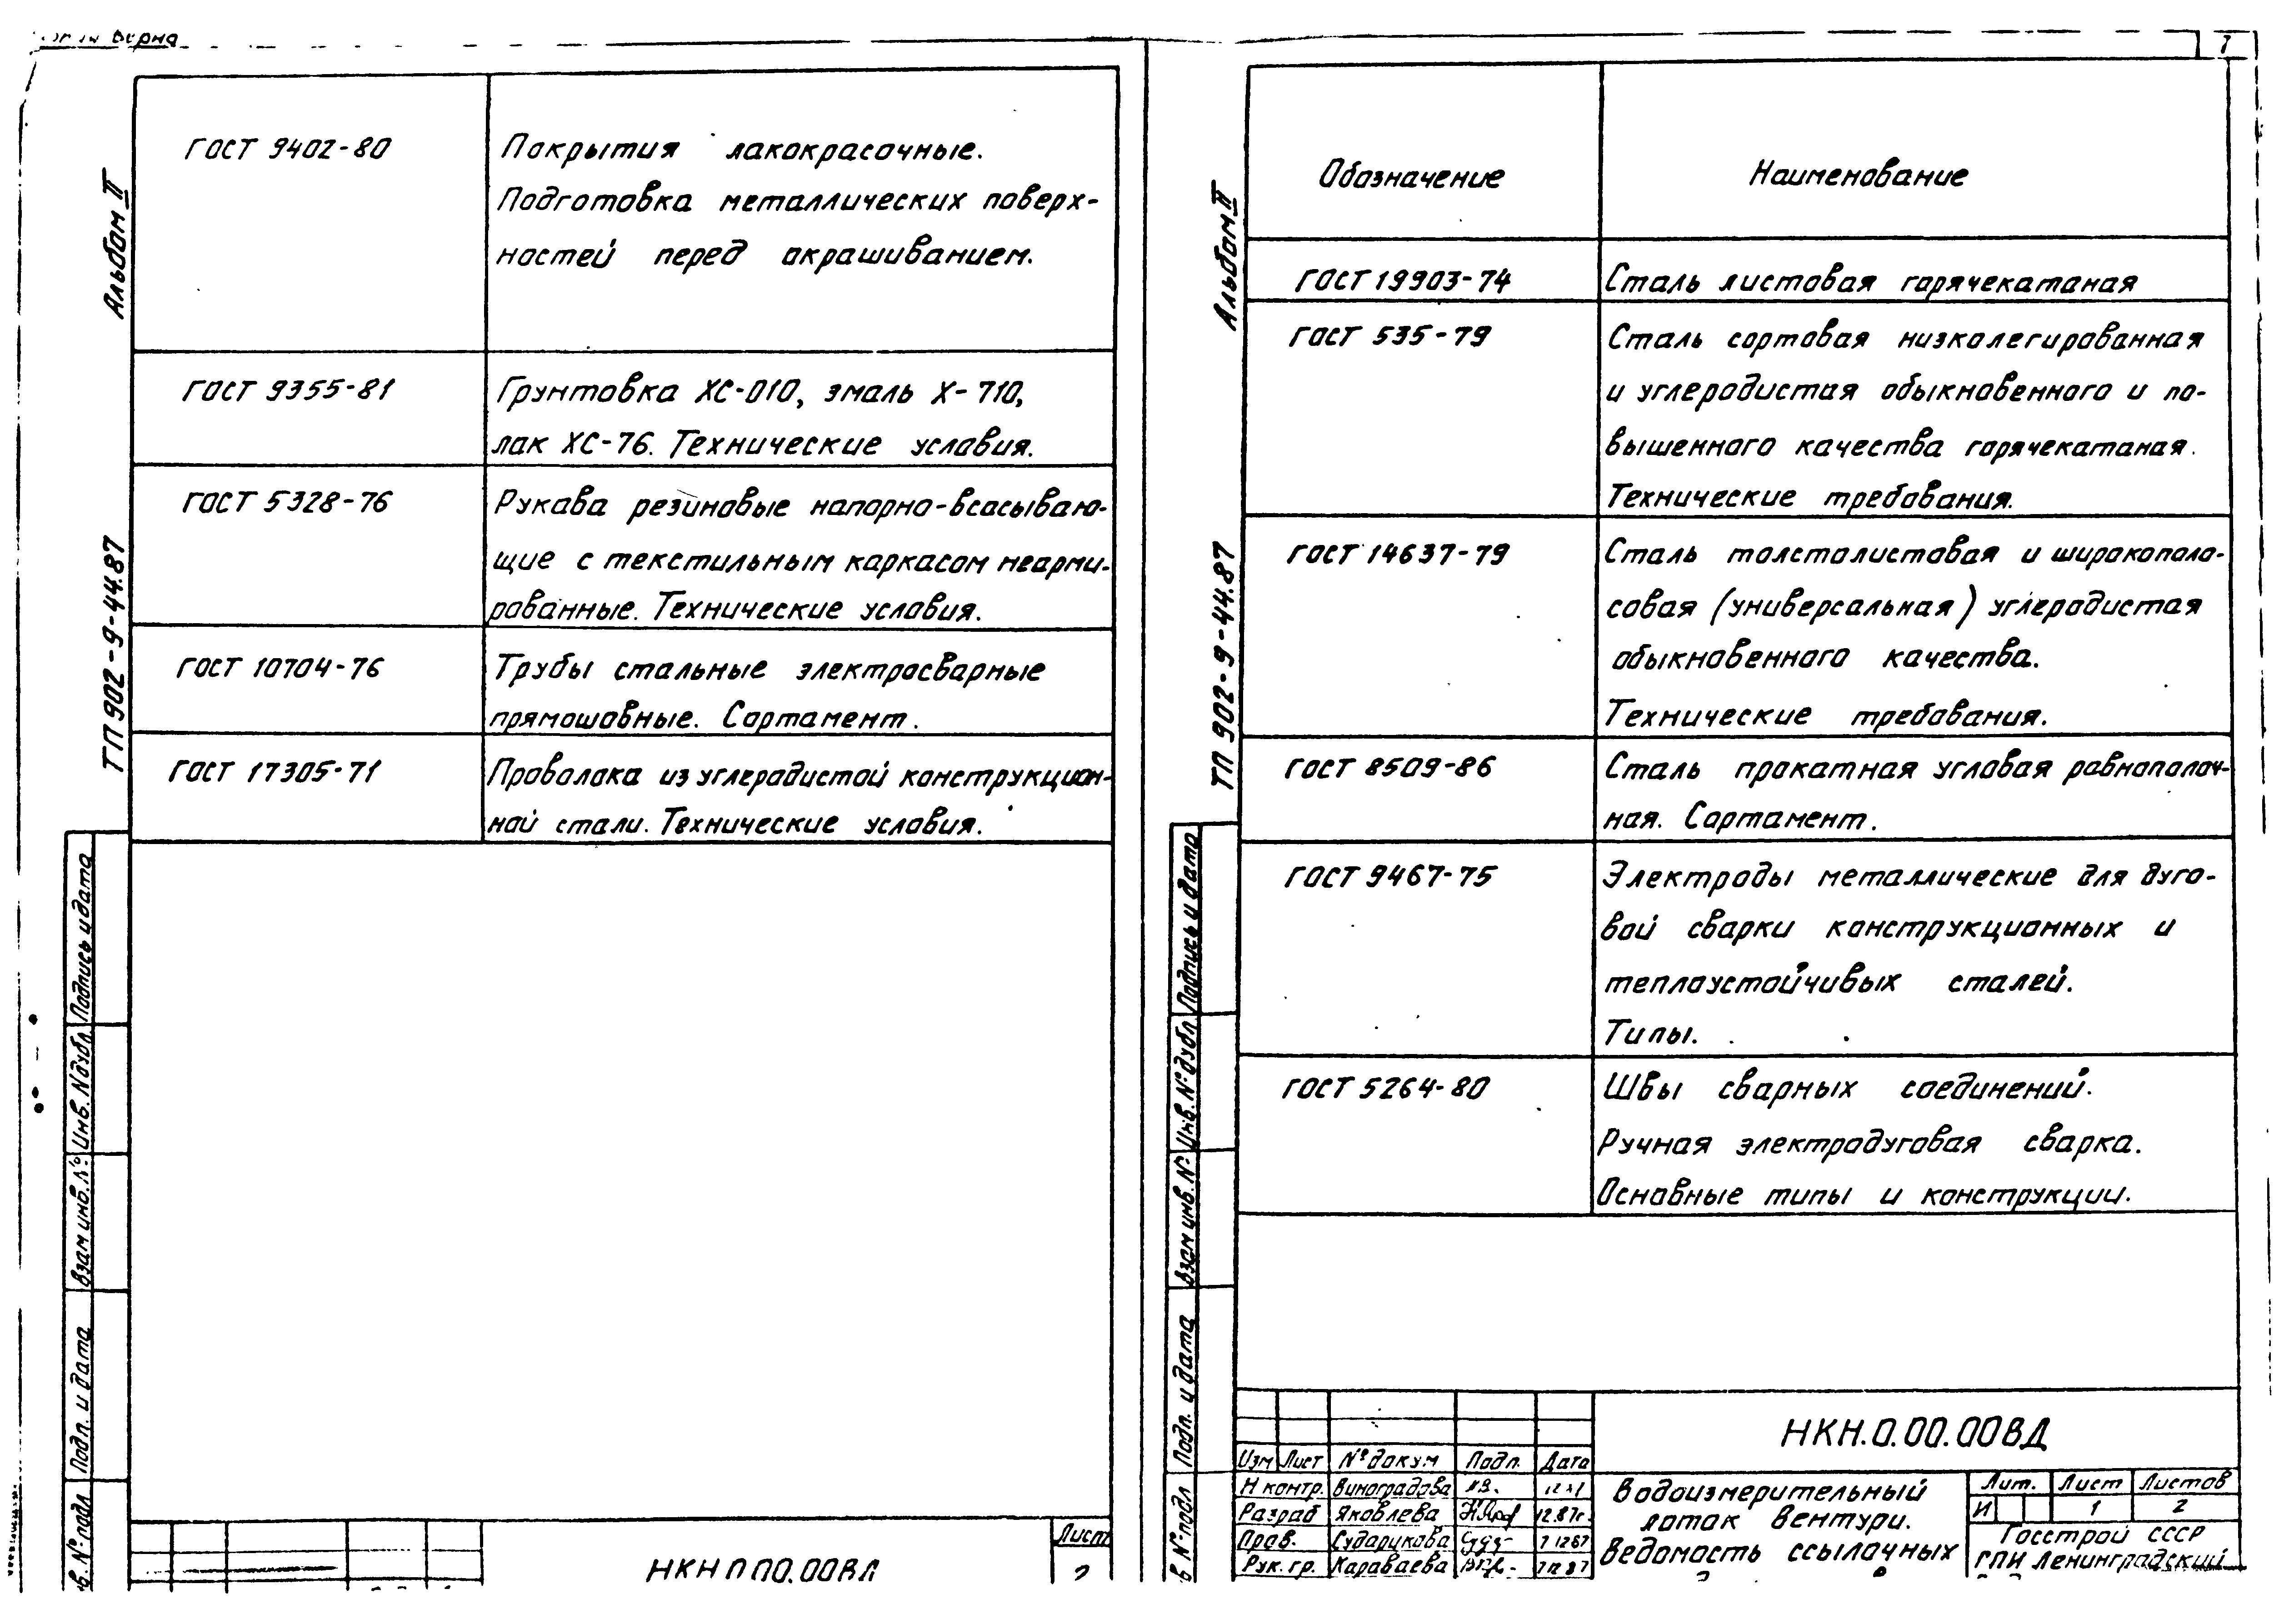 Верна
7
Альбом II
ТП 902-9-44.87
ГОСТ 9402-80
Покрытия лакокрасочные.
Подготовка металлических поверх-
ностей перед окрашиванием.
ГОСТ 9355-81
Грунтовка ХС-010, эмаль Х-710,
лак ХС-76. Технические условия.
ГОСТ 5328-76
Рукава резиновые напорно-всасываю-
щие с текстильным каркасом неарми-
рованные. Технические условия.
ГОСТ 10704-76
Трубы стальные электросварные
прямошовные. Сортамент.
ГОСТ 17305-71
Проволока из углеродистой конструкцион-
ной стали. Технические условия.
Подпись и дата
Инв. N дубл.
Взам инв. №
Подп. и дата
№ подл
Лист
2
Альбом II
ТП 902-9-44.87
Обозначение
Наименование
ГОСТ 19903-74
Сталь листовая горячекатаная
ГОСТ 535-79
Сталь сортовая низколегированная
и углеродистая обыкновенного и по-
вышенного качества горячекатаная.
Технические требования.
ГОСТ 14637-79
Сталь толстолистовая и широкополо-
совая (универсальная) углеродистая
обыкновенного качества.
Технические требования.
ГОСТ 8509-86
Сталь прокатная угловая равнополоч-
ная. Сортамент.
ГОСТ 9467-75
Электроды металлические для дуго-
вой сварки конструкционных и
теплоустойчивых сталей.
Типы.
ГОСТ 5264-80
Швы сварных соединений.
Ручная электродуговая сварка.
Основные типы и конструкции.
Подпись и дата
Инв. № дубл
Взам инв. №
Подп. и дата
№ подл
НКН.0.00.00ВД
Изм Лист № докум Подп. Дата
Н контр. Виноградова
Разраб Яковлева 12.87г.
Пров. Сударикова
Рук. гр. Караваева
Водоизмерительный
лоток Вентури.
Ведомость ссылочных
Лит. Лист Листов
И 1 2
Госстрой СССР
ГПИ Ленинградский